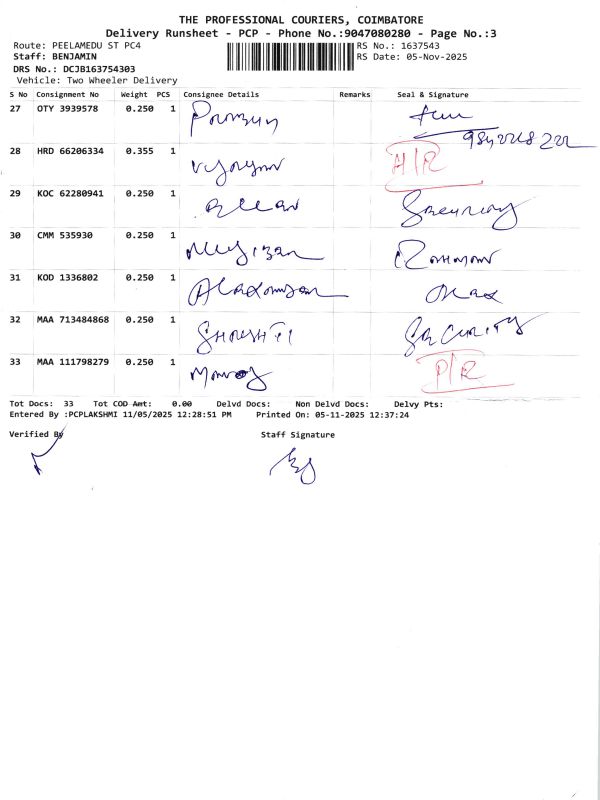 THE PROFESSIONAL COURIERS, COIMBATORE
Delivery Runsheet - PCP - Phone No.:9047080280 - Page No.:3
Route: PEELAMEDU ST PC4 RS No.: 1637543
Staff: BENJAMIN RS Date: 05-Nov-2025
DRS No.: DCJB163754303
Vehicle: Two Wheeler Delivery
S No Consignment No Weight PCS Consignee Details Remarks Seal & Signature
27 OTY 3939578 0.250 1
28 HRD 66206334 0.355 1 A/R
29 KOC 62280941 0.250 1 Security
30 CMM 535930 0.250 1
31 KOD 1336802 0.250 1
32 MAA 713484868 0.250 1 Security
33 MAA 111798279 0.250 1 Manoj P/R
Tot Docs: 33 Tot COD Amt: 0.00 Delvd Docs: Non Delvd Docs: Delvy Pts:
Entered By :PCPLAKSHMI 11/05/2025 12:28:51 PM Printed On: 05-11-2025 12:37:24
Verified By Staff Signature